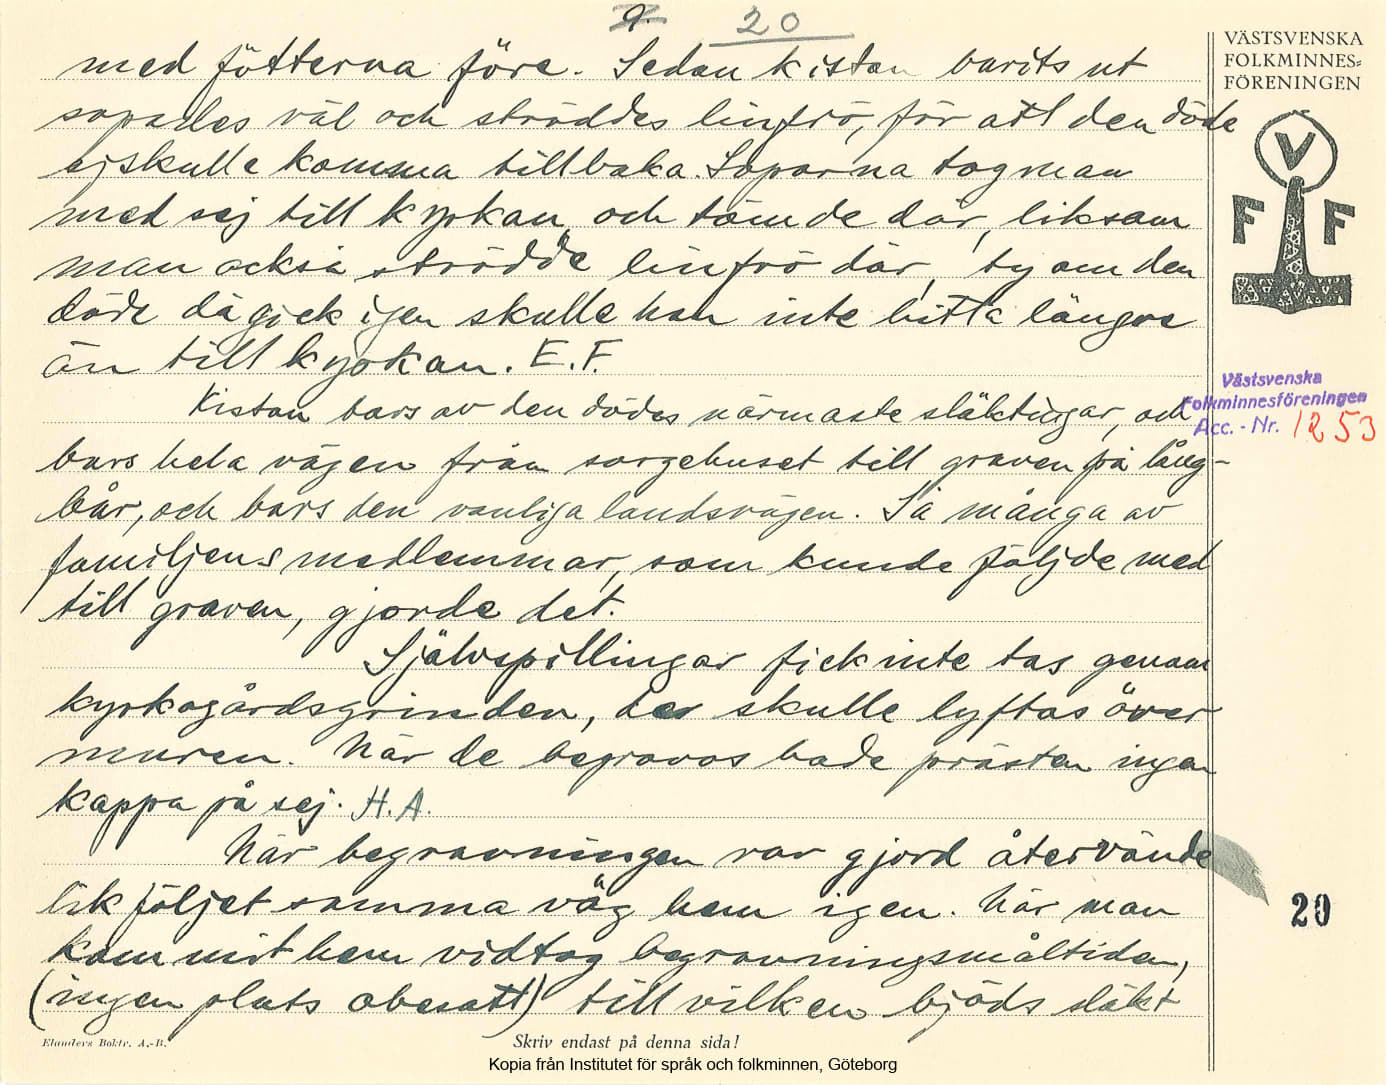 20
VÄSTSVENSKA
FOLKMINNES-
FÖRENINGEN
med fötterna före. Sedan kistan barits ut
sopades väl och ströddes linfrö, för att den döde
ej skulle komma tillbaka. Soporna tog man
med sej till kyrkan och tömde där, liksom
man också strödde linfrö där, ty om den
döde då gick igen skulle han inte hitta längre
än till kyrkan. E.F.
Kistan bars av den dödes närmaste släktingar, och
bars hela vägen från sorgehuset till graven på lång-
bår, och bars den vanliga landsvägen. Så många av
familjens medlemmar, som kunde följde med
till graven, gjorde det.
Självspillingar fick inte tas genom
kyrkogårdsgrinden, de skulle lyftas över
muren. När de begravas hade prästen ingen
kappa på sej. H.A.
När begravningen var gjord återvände
likföljet samma väg hem igen. När man
kommit hem vidtog begravningsmåltiden,
(ingen plats obesatt) till vilken bjöds släkt
V
F F
Västsvenska
Folkminnesföreningen
Acc. - Nr. 1253
20
Elanders Boktr. A.-B.
Skriv endast på denna sida!
Kopia från Institutet för språk och folkminnen, Göteborg